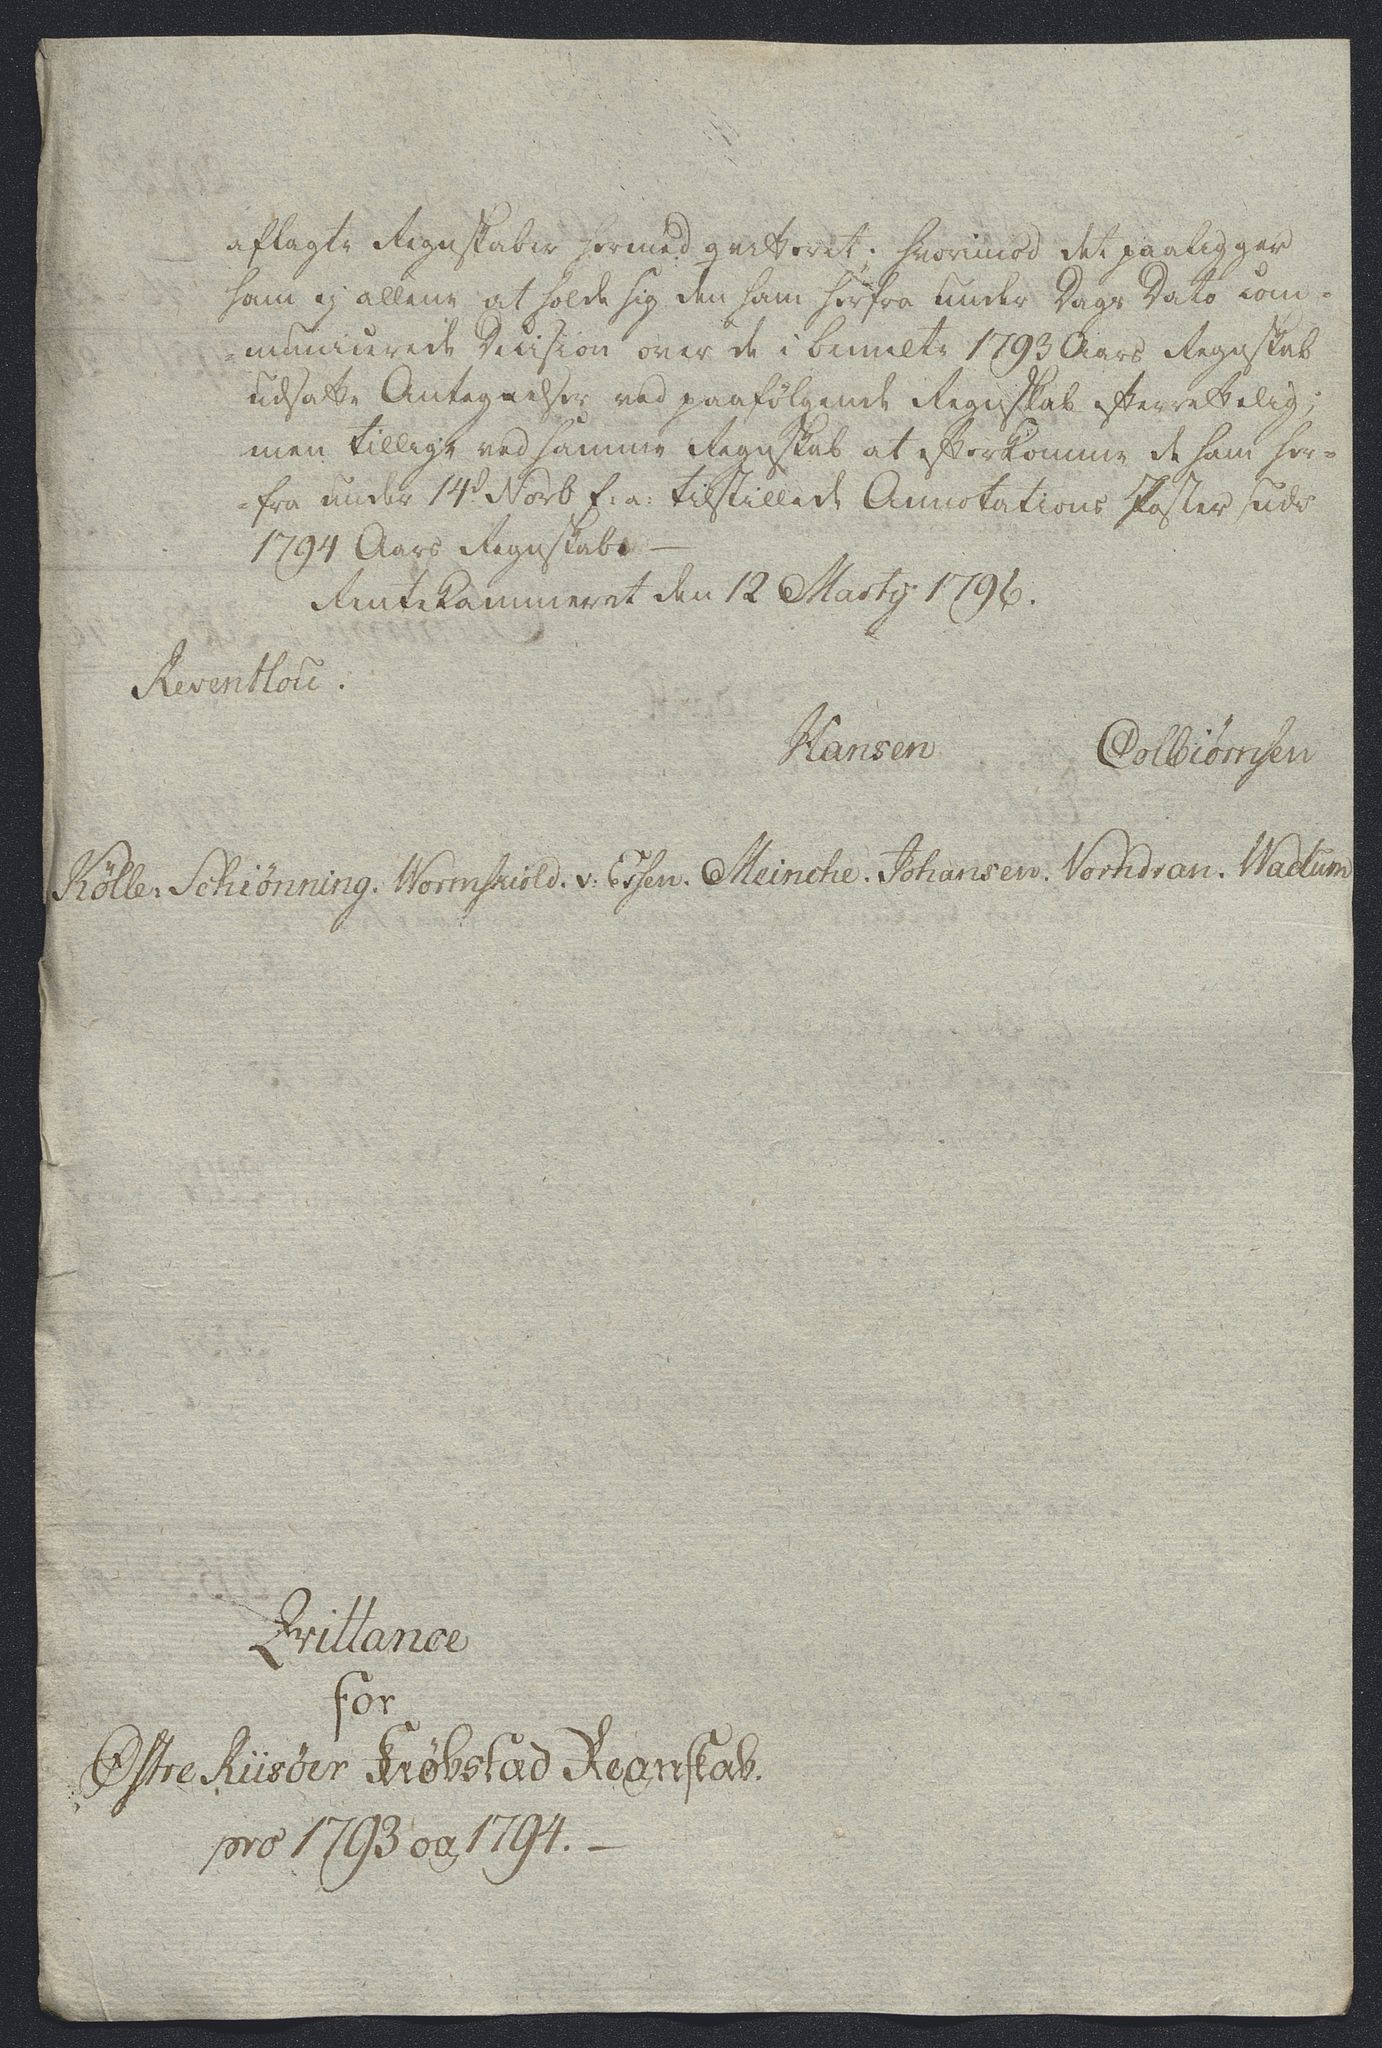 aflagte Regnskaber hermed qvitteret; hvorimod det paaligger
ham ej allene at holde sig den ham herfra under Dags Dato com-
-municerede Decision over de i bemelte 1793 Aars Regnskab
udsatte Antegnelser ved paafølgende Regnskab efterrettelig;
men tillige ved samme Regnskab at efterkomme de ham her-
-fra under 14d Novb f: a: tilstillede Annotations Poster
1794 Aars Regnskab
Rentekammeret den 12 Martij 1796.
Reventlou.
Hansen Colbiørnsen
Kølle. Schiønning. Wormskiold. v: Essen. Meinche. Johansen. Vorndran. Wadum
Qvittance
for
Østre Riisøer Kiøbstad Regnskab.
pro 1793 og 1794. —